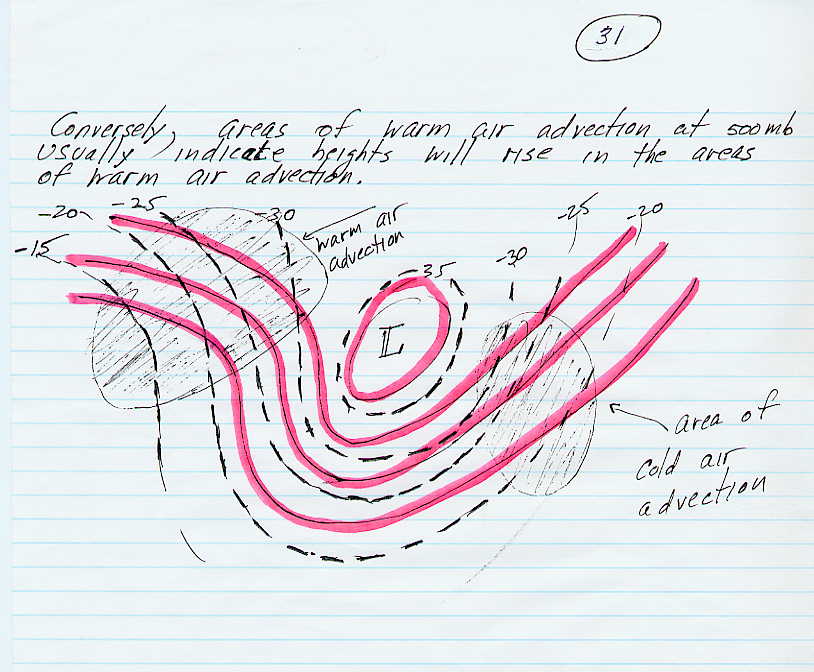 31
Conversely, areas of warm air advection at 500mb
usually indicate heights will rise in the areas
of warm air advection.
-20
-25
-30
-15
warm air
advection
-35
-30
-25
-20
L
area of
cold air
advection